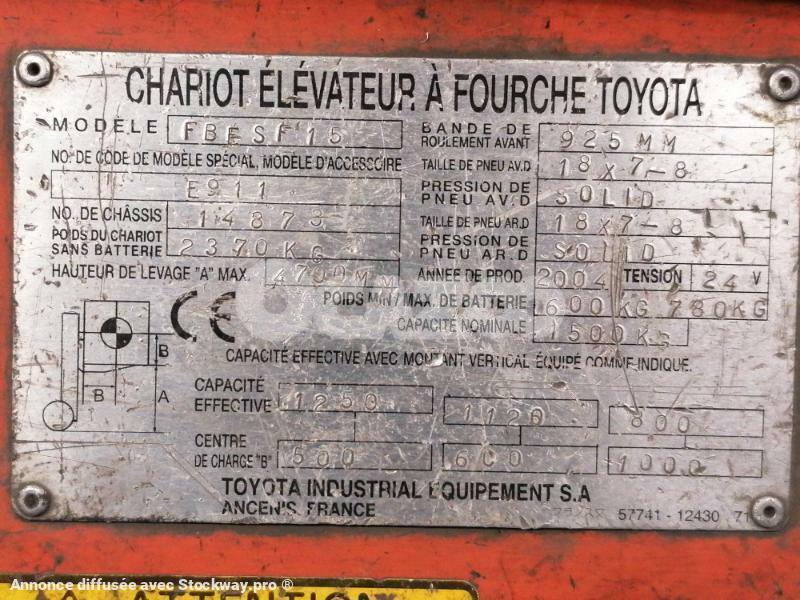 CHARIOT ÉLÉVATEUR À FOURCHE TOYOTA
MODÈLE FBESF15
NO. DE CODE DE MODÈLE SPÉCIAL, MODÈLE D'ACCESSOIRE
E911
NO. DE CHÂSSIS 14873
POIDS DU CHARIOT SANS BATTERIE 2370KG
HAUTEUR DE LEVAGE "A" MAX. 4700MM
BANDE DE ROULEMENT AVANT 925MM
TAILLE DE PNEU AV.D 18X7-8
PRESSION DE PNEU AV.D SOLID
TAILLE DE PNEU AR.D 18X7-8
PRESSION DE PNEU AR.D SOLID
ANNÉE DE PROD. 2004 TENSION 24 V
POIDS MIN/MAX. DE BATTERIE 600KG 780KG
CAPACITÉ NOMINALE 1500KG
CE
B
B
A
CAPACITÉ EFFECTIVE AVEC MONTANT VERTICAL ÉQUIPÉ COMME INDIQUE.
CAPACITÉ EFFECTIVE 1250 1120 800
CENTRE DE CHARGE "B" 500 600 1000
TOYOTA INDUSTRIAL EQUIPEMENT S.A
ANCENIS, FRANCE
57741-12430-71
Annonce diffusée avec Stockway.pro ®
ATTENTION